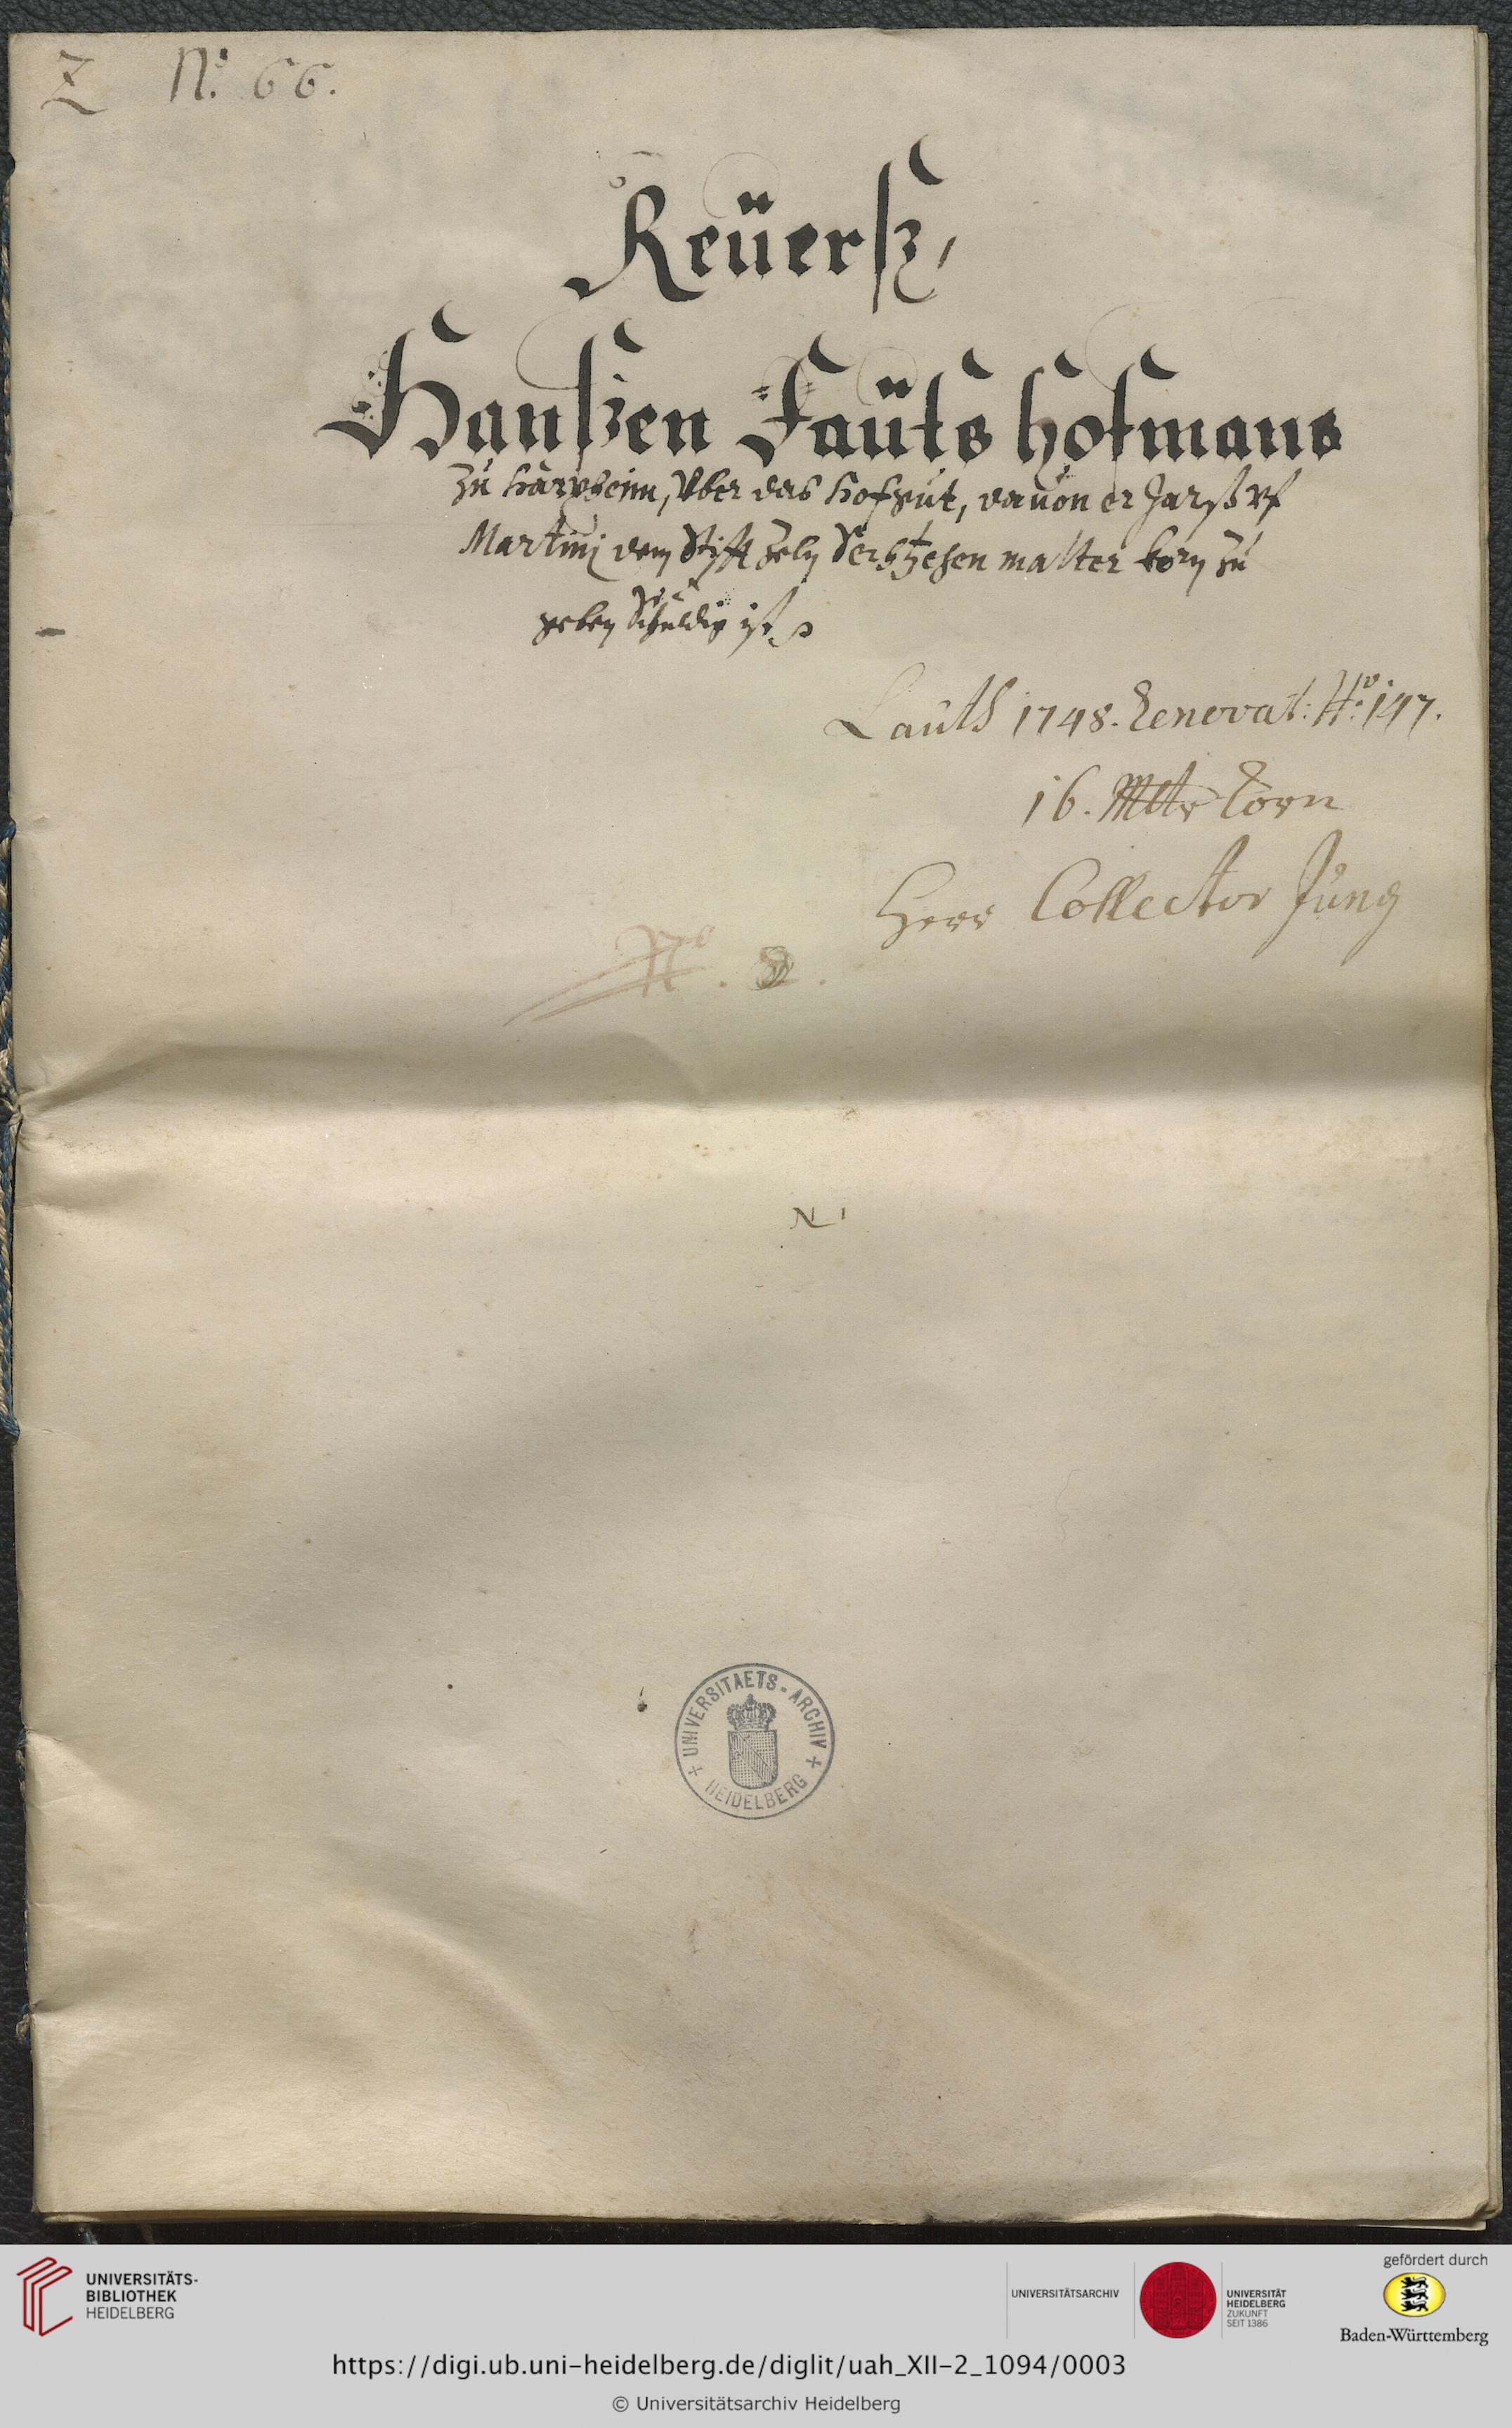 Z N.º 66.
Reüerß,
Hanßen Faüts hofmans
Zu Harxheim, Vber das Hofgut, dauon er Jarß vf
Martinj dem Stifft Zeln Sechtzehen malter korn zu
geben Schuldig ist
Lauth 1748. Renovat: N.º 147.
16. Mltr Korn
Herr Collector Jung
Nº. 2.
N 1
UNIVERSITAETS-ARCHIV
HEIDELBERG
UNIVERSITÄTS-
BIBLIOTHEK
HEIDELBERG
UNIVERSITÄTSARCHIV
UNIVERSITÄT
HEIDELBERG
ZUKUNFT
SEIT 1386
gefördert durch
Baden-Württemberg
https://digi.ub.uni-heidelberg.de/diglit/uah_XII-2_1094/0003
© Universitätsarchiv Heidelberg